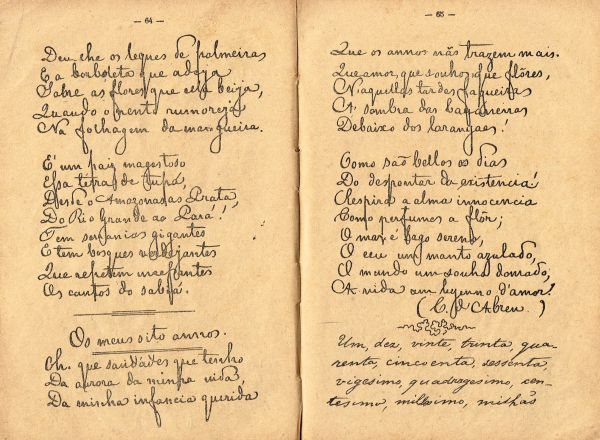 — 64 —
Deu-lhe os leques de palmeiras
E a borboleta que adeja
Sobre as flores que ella beija,
Quando o vento rumoreja
Na folhagem da mangueira.
É um paiz magestoso
Essa terra de Tupá,
Desde o Amazonas ao Prata,
Do Rio Grande ao Pará!
Tem serranias gigantes
E tem bosques verdejantes
Que repetem incessantes
Os cantos do sabiá.
Os meus oito annos.
Oh. que saudades que tenho
Da aurora da minha vida
Da minha infancia querida
— 65 —
Que os annos não trazem mais.
Que amor, que sonhos, que flôres,
N'aquellas tardes fagueiras
A' sombra das bananeiras
Debaixo dos laranjaes!
Como são bellos os dias
Do despontar da existencia!
Respira a alma innocencia
Como perfumes a flôr;
O mar é lago sereno,
O ceu um manto azulado,
O mundo um sonho dourado,
A vida um hymno d'amor!
(C. d'Abreu.)
Um, dez, vinte, trinta, qua-
renta, cincoenta, sessenta,
vigesimo, quadragesimo, cen-
tesimo, millesimo, milhão